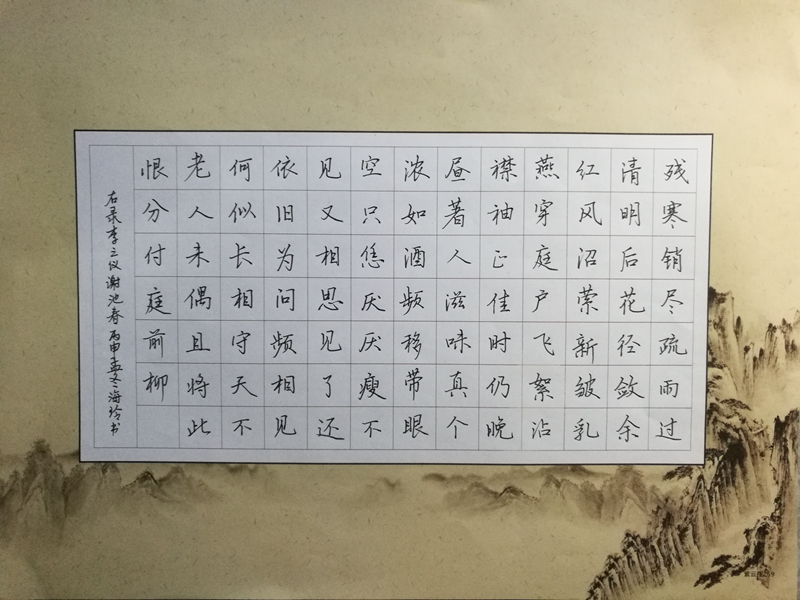 残寒销尽疏雨过
清明后花径敛余
红风沼萦新皱乳
燕穿庭户飞絮沾
襟袖正佳时仍晚
昼著人滋味真个
浓如酒频移带眼
空只恁厌厌瘦不
见又相思见了还
依旧为问频相见
何似长相守天不
老人未偶且将此
恨分付庭前柳
右录李之仪谢池春丙申孟冬海玲书